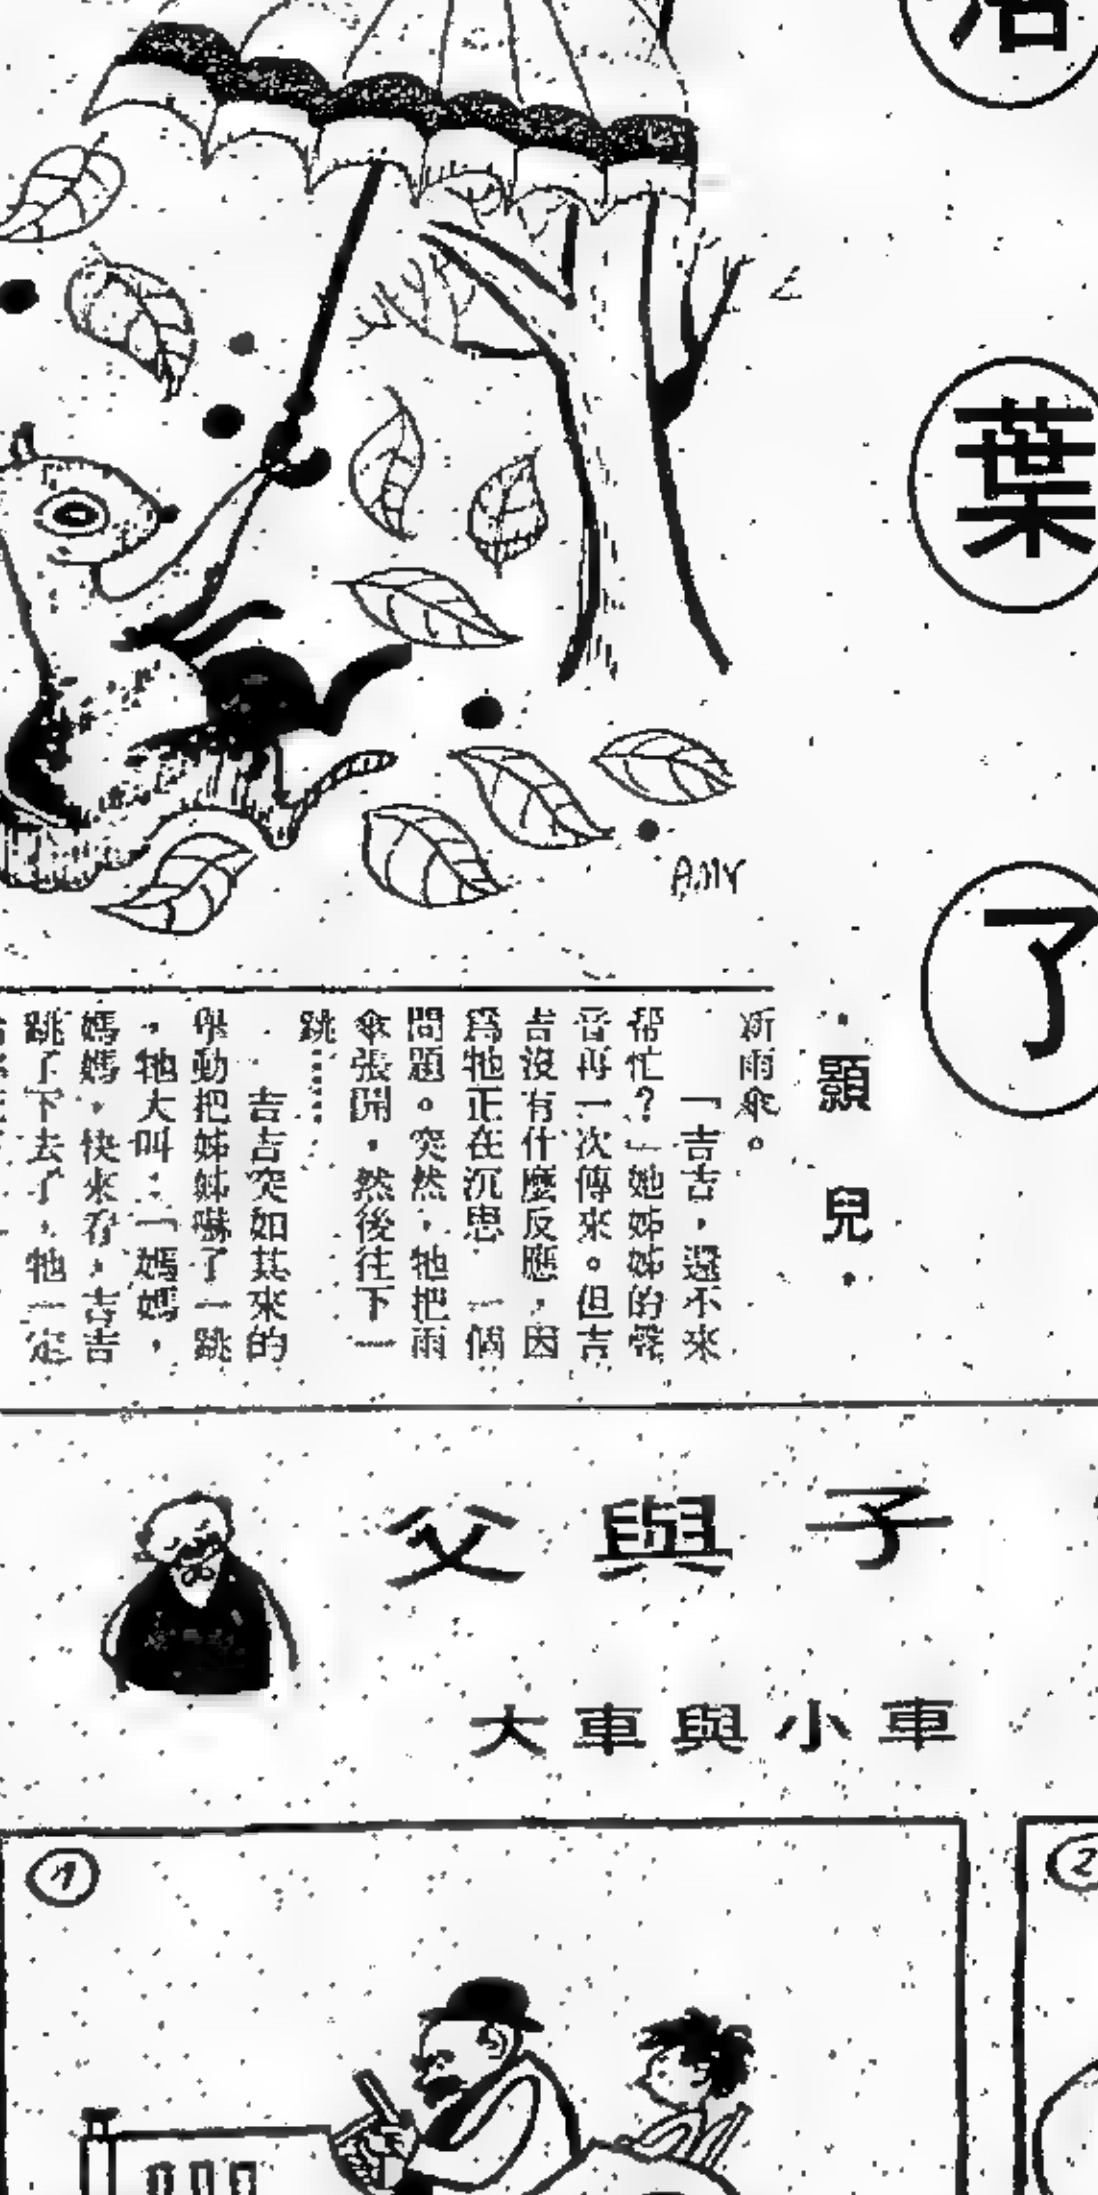 葉了
·顯兒·
新雨傘。
「吉吉,還不來
帮忙?」她姊姊的聲
音再一次傳來。但吉
吉沒有什麼反應,因
爲牠正在沉思 一個
問題。突然,牠把雨
傘張開,然後往下一
跳……
吉吉突如其來的
舉動把姊姊嚇了一跳
,牠大叫:「媽媽,
媽媽,快來看,吉吉
跳了下去了,牠一定
AMY
父與子
大車與小車
1
2